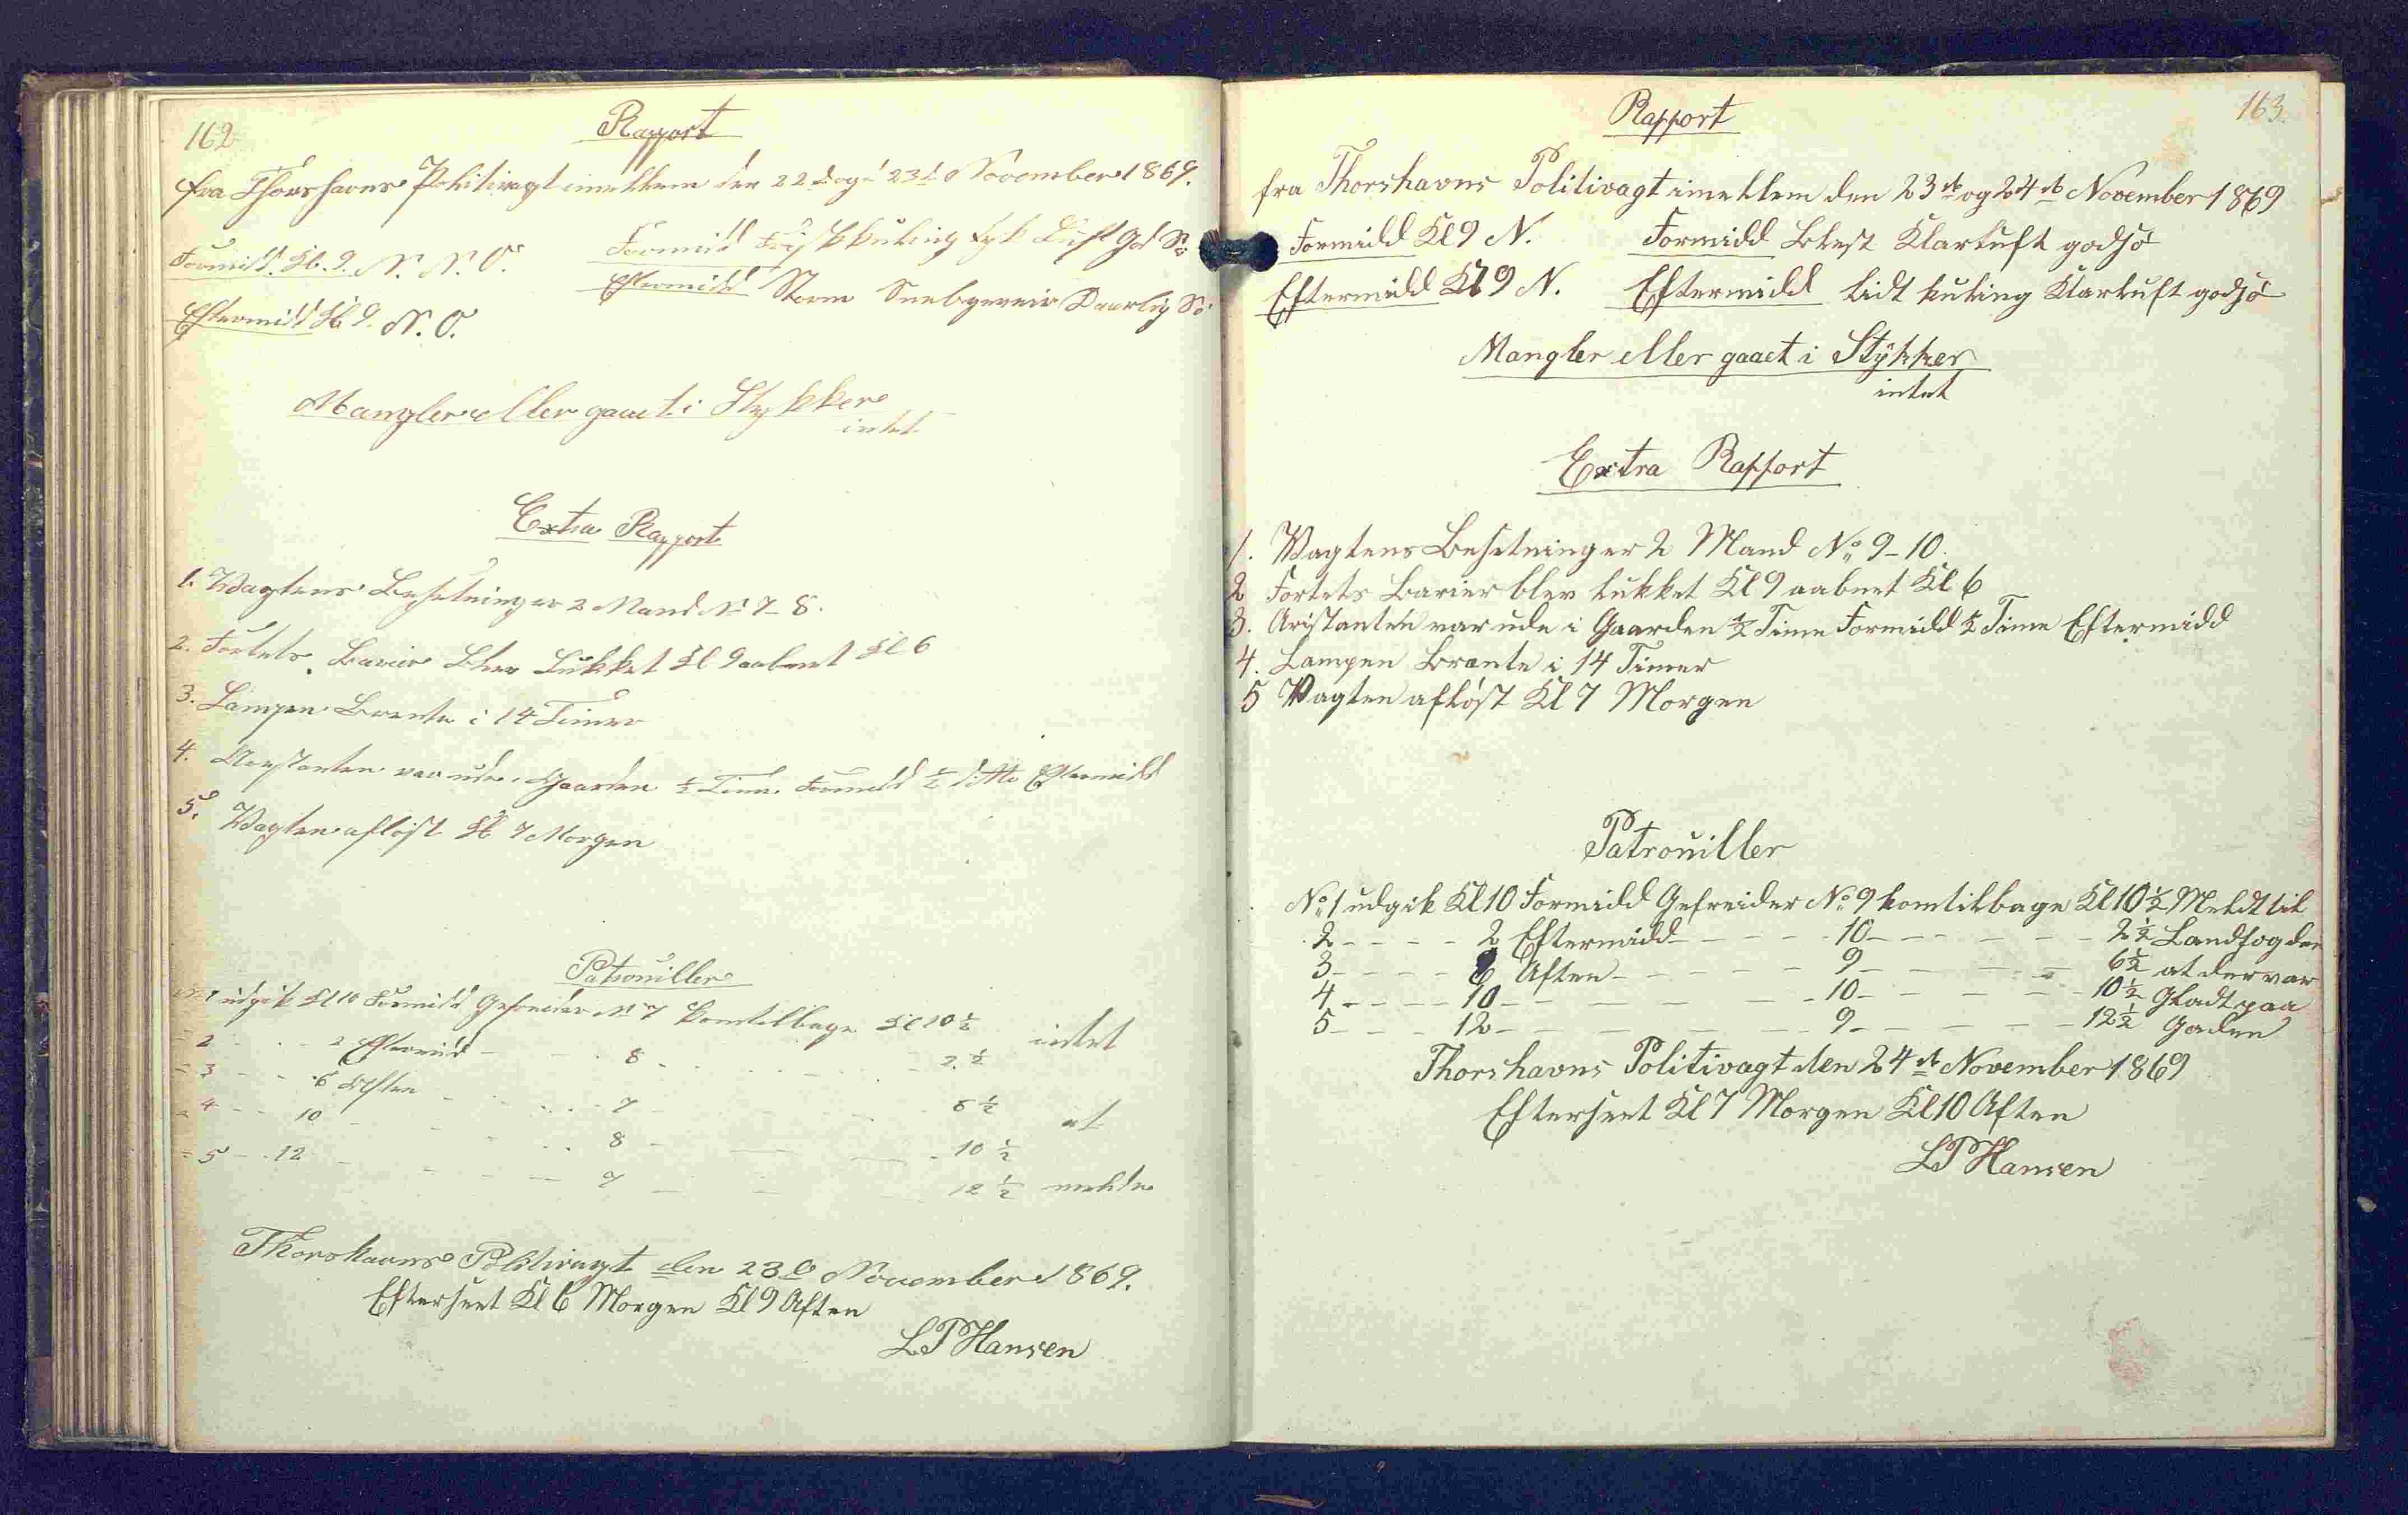 162
Rapport
fra Thorshavns Politivagt imellem den 22d og 23d November 1869.
Formidd. Kl. 9. N. N. O. Formidd Friskkuling tyk Luft god Sø
Eftermidd Kl 9. N. O. Eftermidd Storm Snebyeveir Daarlig Sø
Mangler eller gaaet i Stykker
intet
Extra Rapport
1. Vagtens Besetninger 2 Mand No 7-8.
2. Fortets Barier blev Lukket Kl 9 aabnet Kl 6
3. Lampen Brente i 14 Timer
4. Arestanten var ude i Gaarden ½ Time Formidd ½ ditto Eftermidd
5. Vagten afløst Kl 7 Morgen
Patrouiller
No 1 udgik Kl 10 Formidd Gefreider No 7 komtilbage Kl 10 ½ intet
= 2 - - - 2 Eftermid - - - 8 - - - 2 ½
= 3 - - 6 Aften - - - 7 - - - 6 ½ at
= 4 - - 10 - - - 8 - - - 10 ½
= 5 - - 12 - - - 7 - - - 12 ½ melde
Thorshavns Politivagt den 23d November 1869.
Efterseet Kl 6 Morgen Kl 9 Aften
LP Hansen
163.
Rapport
fra Thorshavns Politivagt imellem den 23de og 24de November 1869
Formidd Kl 9 N. Formidd Blest Klarluft godsø
Eftermidd Kl 9 N. Eftermidd lidt kuling Klarluft godsø
Mangler eller gaaet i Stykker
intet
Extra Rapport
1. Vagtens Besetninger 2 Mand No 9-10.
2 Fortets Barier blev lukket Kl 9 aabnet Kl 6
3. Aristanten var ude i Gaarden ½ Time Formidd ½ Time Eftermidd
4. Lampen Brænte i 14 Timer
5 Vagten afløst Kl 7 Morgen
Patrouiller
No 1 udgik Kl 10 Formidd Gefreider No 9 komtilbage Kl 10 ½ Meldt til
2 - - - - 2 Eftermidd - - - - 10 - - - - 2 ½ Landfogden
3 - - - - 6 Aften - - - - 9 - - - - 6 ½ at der var
4 - - - - 10 - - - - 10 - - - - 10 ½ Gladt paa
5 - - - 12 - - - - 9 - - - - 12 ½ Gaden
Thorshavns Politivagt den 24de November 1869
Efterseet Kl 7 Morgen Kl 10 Aften
LP Hansen